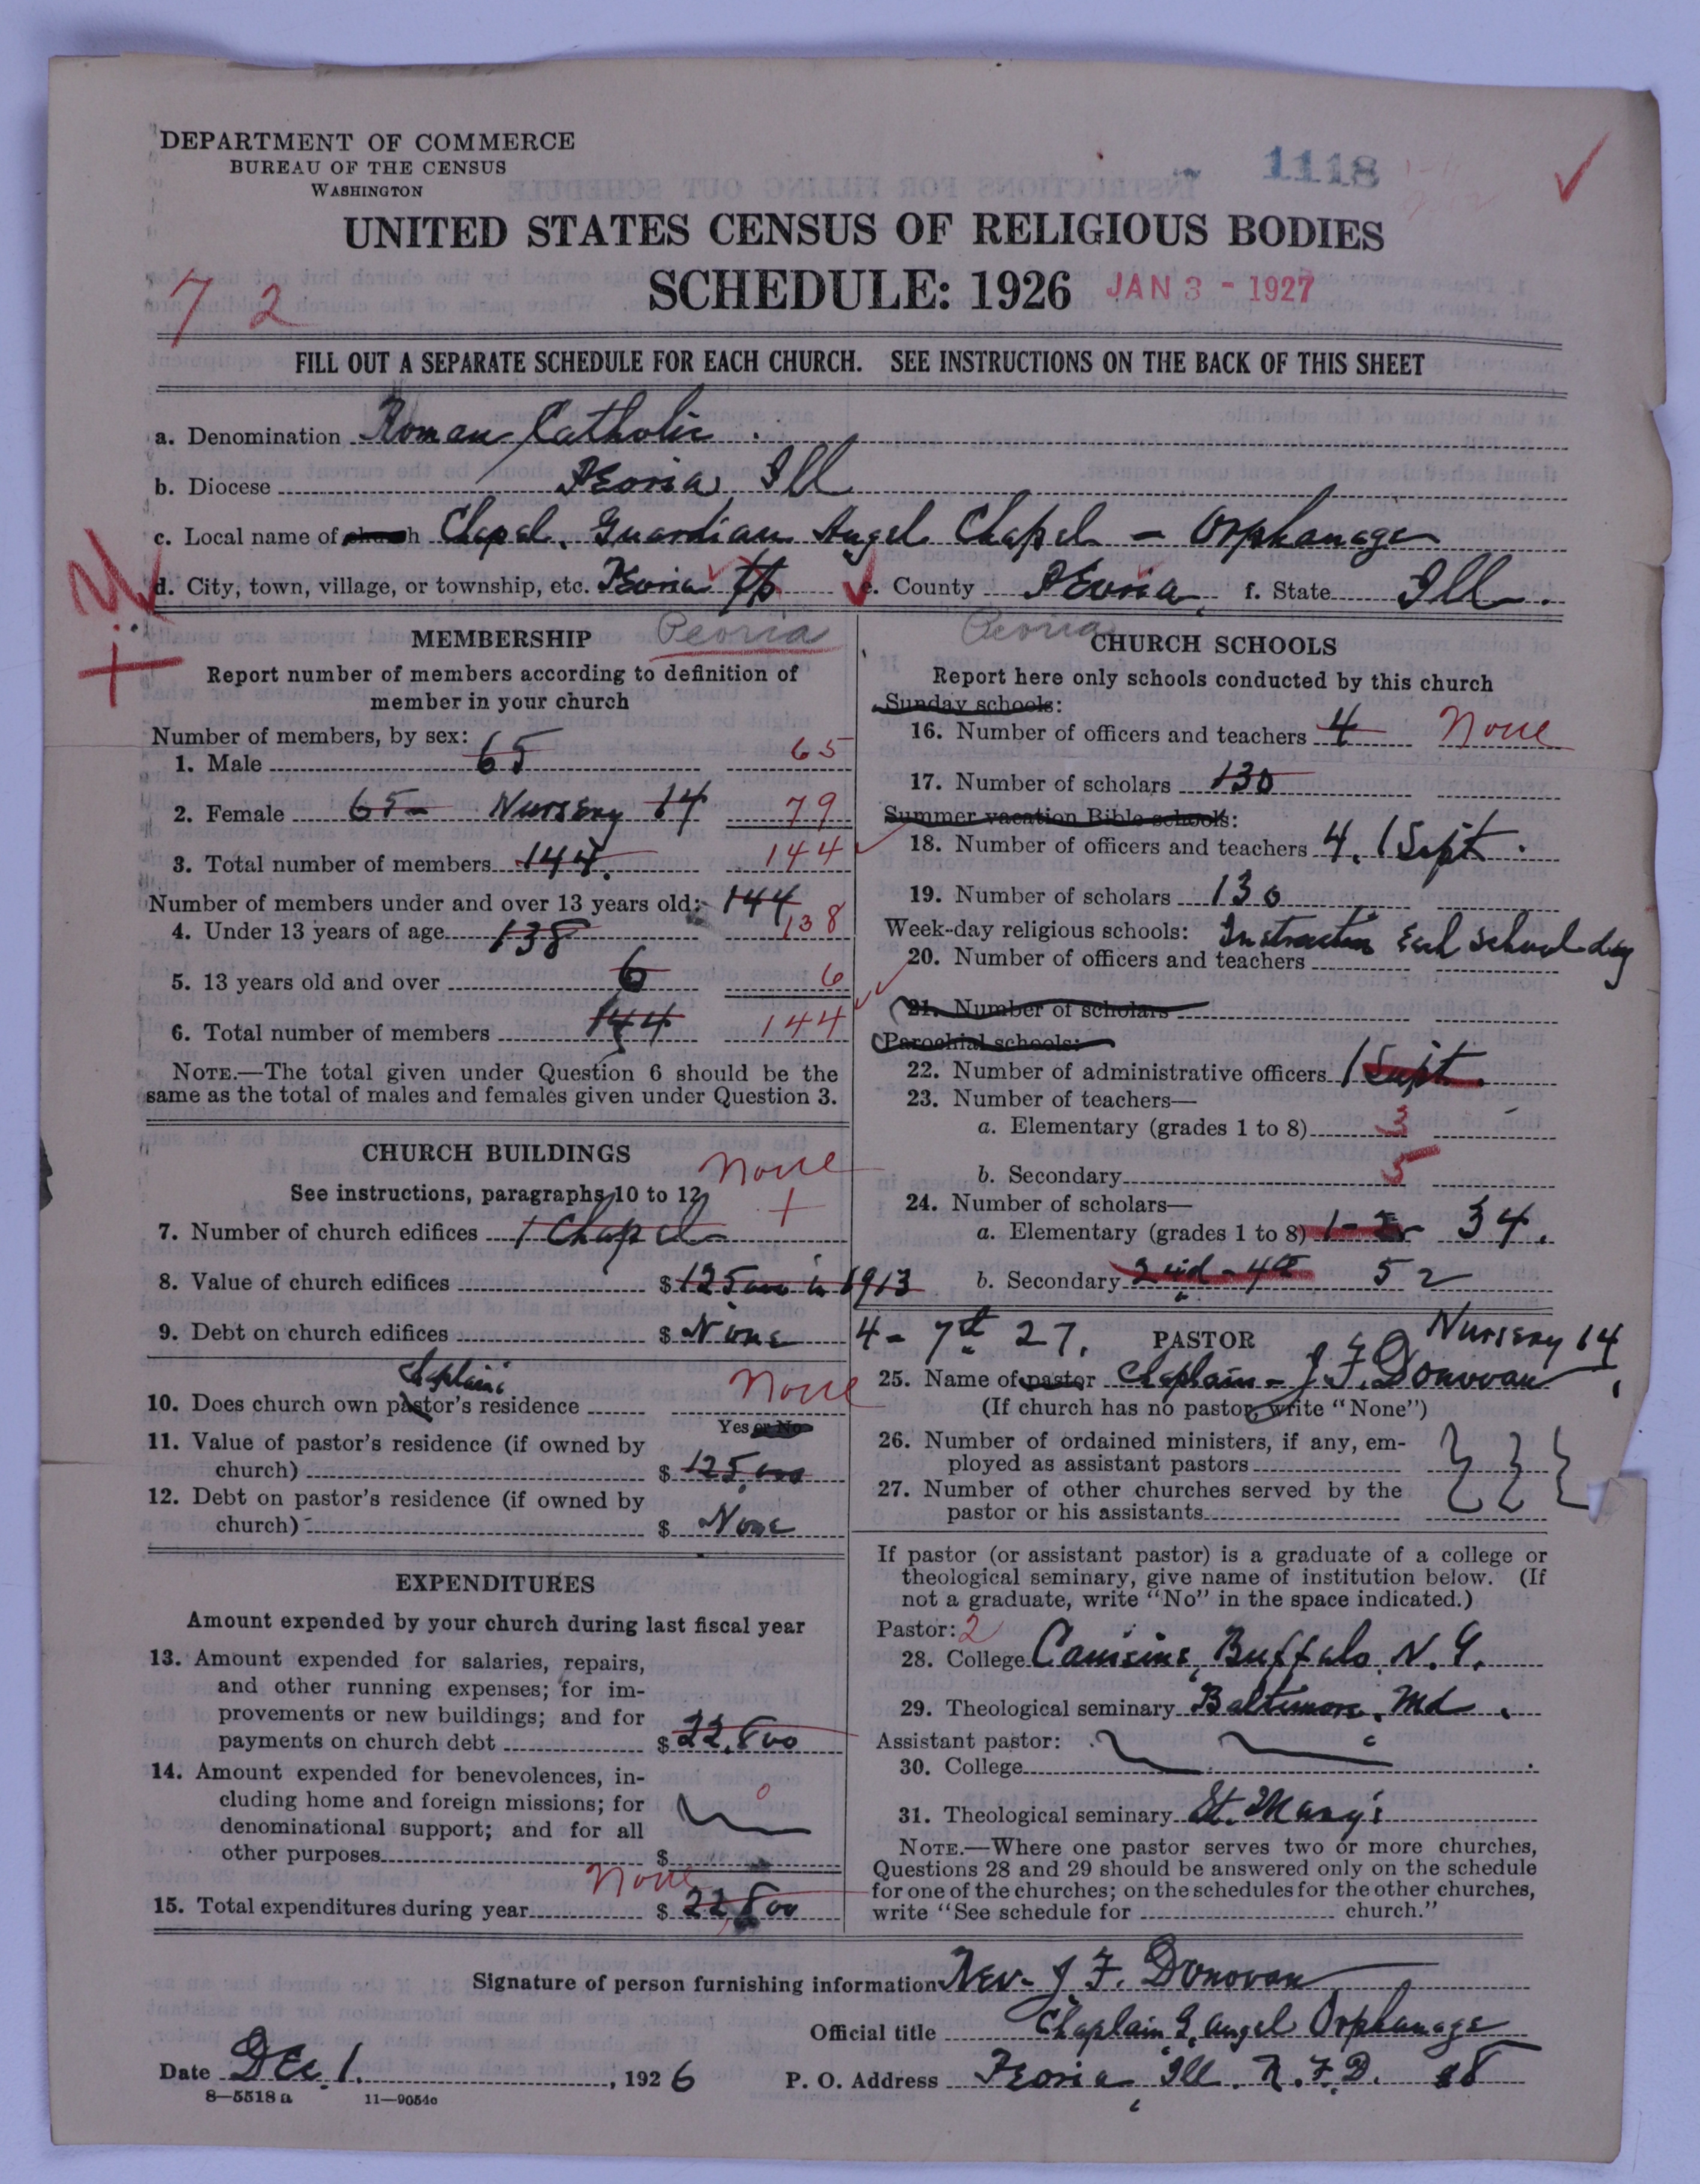 DEPARTMENT OF COMMERCE
BUREAU OF THE CENSUS
WASHINGTON
1118
UNITED STATES CENSUS OF RELIGIOUS BODIES
SCHEDULE: 1926 JAN 3 - 1927
72
FILL OUT A SEPARATE SCHEDULE FOR EACH CHURCH. SEE INSTRUCTIONS ON THE BACK OF THIS SHEET
a. Denomination Roman Catholic
b. Diocese Peoria, Ill
c. Local name of church Chapel. Guardian Angel Chapel - Orphanage
d. City, town, village, or township, etc. Peoria tp e. County Peoria f. State Ill.
MEMBERSHIP Peoria
Report number of members according to definition of
member in your church
Number of members, by sex:
1. Male 65 65
2. Female 65- Nursery 14 79
3. Total number of members 144. 144
Number of members under and over 13 years old: 144
4. Under 13 years of age 138 138
5. 13 years old and over 6 6
6. Total number of members 144 144
NOTE.—The total given under Question 6 should be the
same as the total of males and females given under Question 3.
CHURCH BUILDINGS None
See instructions, paragraphs 10 to 12
7. Number of church edifices 1 Chapel
8. Value of church edifices $ 125000 in 1913
9. Debt on church edifices $ None
Chaplain's
10. Does church own pastor's residence None
Yes or No
11. Value of pastor's residence (if owned by
church) $ 125,000
12. Debt on pastor's residence (if owned by
church) $ None
EXPENDITURES
Amount expended by your church during last fiscal year
13. Amount expended for salaries, repairs,
and other running expenses; for im-
provements or new buildings; and for
payments on church debt $ 22,800
14. Amount expended for benevolences, in-
cluding home and foreign missions; for
denominational support; and for all
other purposes $
0
None
15. Total expenditures during year $ 22800
Peoria CHURCH SCHOOLS
Report here only schools conducted by this church
Sunday schools:
16. Number of officers and teachers 4 None
17. Number of scholars 130
Summer vacation Bible schools:
18. Number of officers and teachers 4. 1 Supt.
19. Number of scholars 130
Week-day religious schools: Instruction Each School day
20. Number of officers and teachers
21. Number of scholars
Parochial schools:
22. Number of administrative officers 1 Supt.
23. Number of teachers—
a. Elementary (grades 1 to 8) 3
b. Secondary 5
24. Number of scholars—
a. Elementary (grades 1 to 8) 1- 2- 34.
b. Secondary 2nd - 4th 52
4 - 7th 27. PASTOR Nursery 14
25. Name of pastor Chaplain - J F. Donovan
(If church has no pastor, write "None")
26. Number of ordained ministers, if any, em-
ployed as assistant pastors
27. Number of other churches served by the
pastor or his assistants
If pastor (or assistant pastor) is a graduate of a college or
theological seminary, give name of institution below. (If
not a graduate, write "No" in the space indicated.)
Pastor: 2
28. College Canisius, Buffalo, N. Y.
29. Theological seminary Baltimore, Md.
Assistant pastor:
30. College
31. Theological seminary St. Mary's
NOTE.—Where one pastor serves two or more churches,
Questions 28 and 29 should be answered only on the schedule
for one of the churches; on the schedules for the other churches,
write "See schedule for church."
Signature of person furnishing information Rev. J F. Donovan
Official title Chaplain G. Angel Orphanage
Date Dec. 1. , 1926 P. O. Address Peoria, Ill. R. F. D. 
8—5518 a 11—9054c